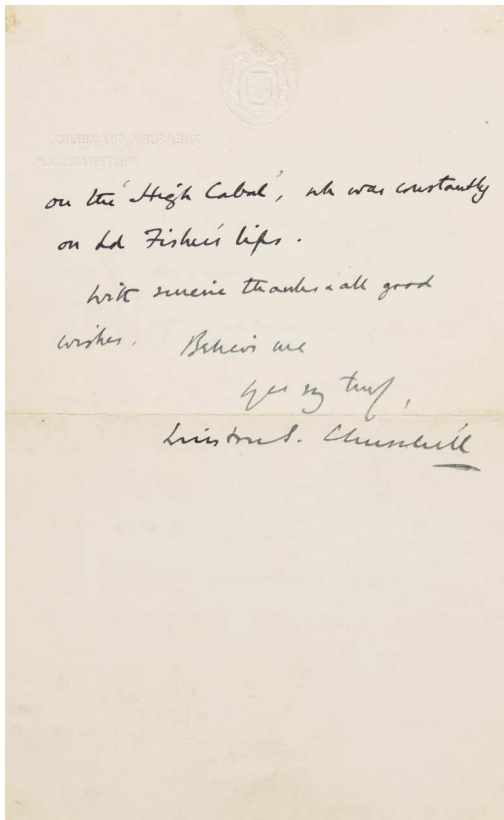 on the 'High Cabal', wh was constantly
on Ld Fisher's lips.
With sincere thanks & all good
wishes. Believe me
yrs vy truly,
Winston S. Churchill